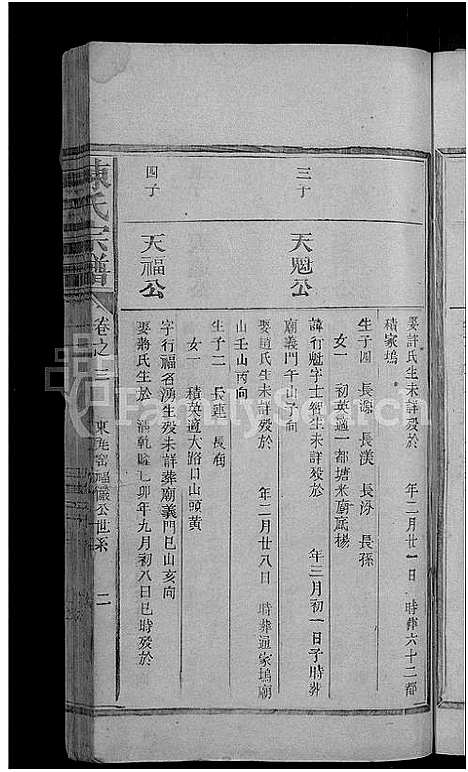 娶許氏生未詳歿於 年二月廿一日 時葬六十二都
積家塢
生子四 長源 長渼 長汸 長孫
女一 初英適一都塘米廟底楊
三子 天魁公 諱行魁字士智生未詳歿於 年三月初一日子時葬
廟義門午山子向
娶趙氏生未詳歿於 年二月廿八日 時葬適家塢廟
山壬山丙向
生子二 長蓮 長
女一 積英適大路口山頭黃
四子 天福公 字行福名湧生歿未詳葬廟義門巳山亥向
娶蔣氏生於 乾隆 卯年九月初八日巳時歿於
陳氏宗譜 卷之三 東 富福儀公世系 二
FamilySearch